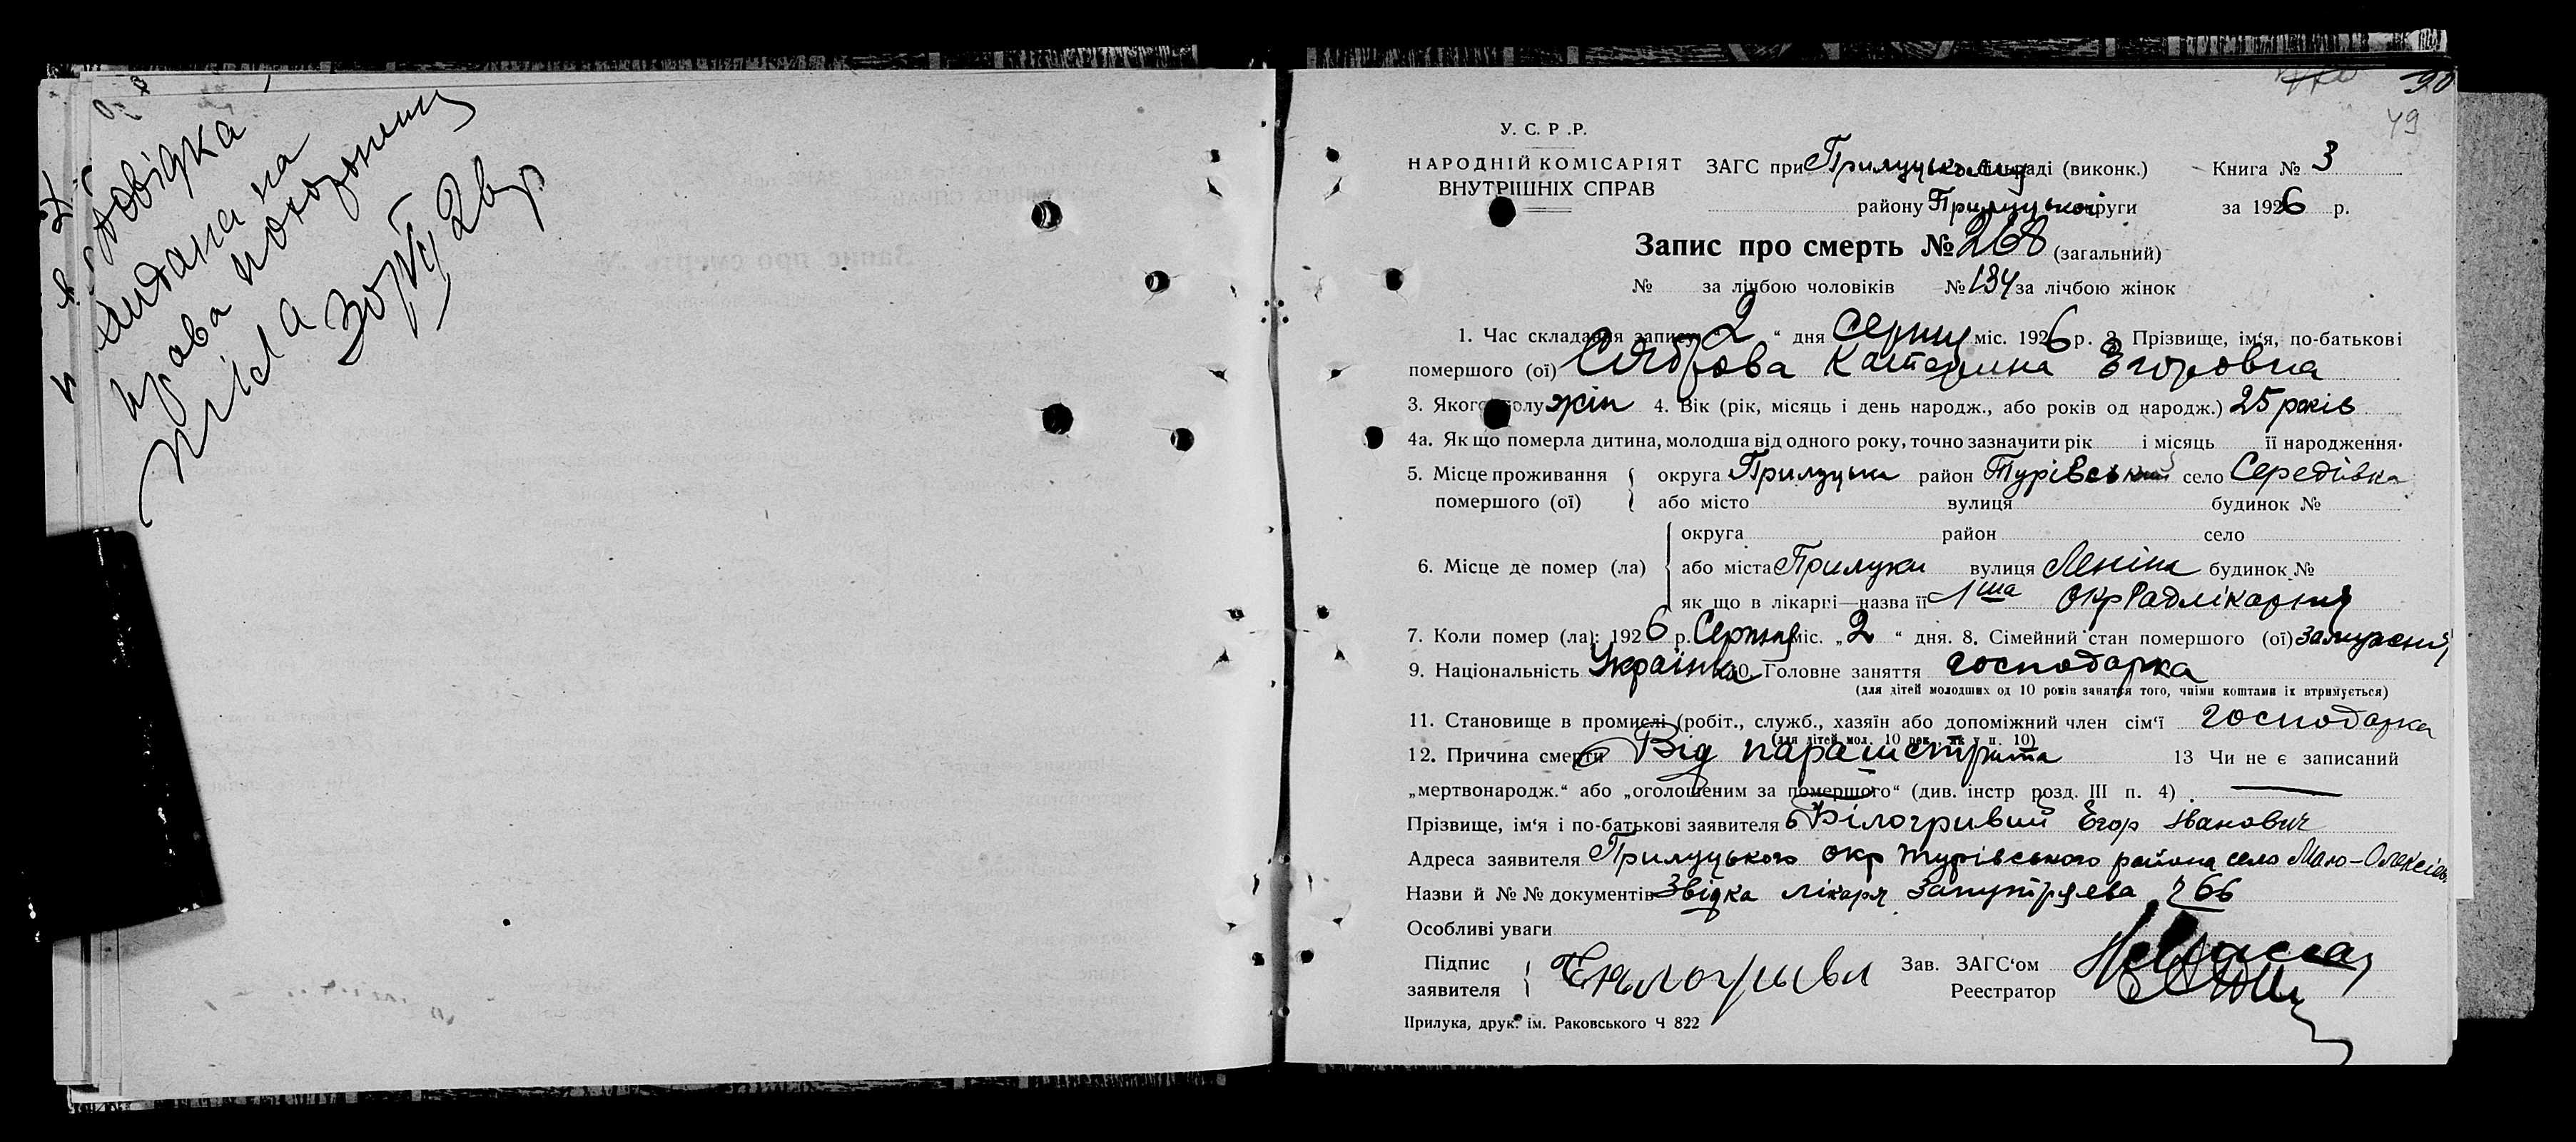 Довідка
видана на
право похорони
тіла
У. С. Р .Р.
НАРОДНІЙ КОМІСАРІЯТ
ВНУТРІШНІХ СПРАВ
ЗАГС при Прилуцькому міськраді (виконк.)
району Прилуцької округи
Книга № 3
за 1926 р.
90
49
Запис про смерть № 268 (загальний)
№ за лічбою чоловіків № 134 за лічбою жінок
1. Час складання запису „2“ дня Серпня міс. 1926 р. 2. Прізвище, ім‘я, по-батькові
помершого (ої) Катерина Егоровна
3. Якого полу жін 4. Вік (рік, місяць і день народж., або років од народж.) 25 років
4а. Як що померла дитина, молодша від одного року, точно зазначити рік і місяць її народження.
5. Місце проживання помершого (ої) { округа Прилуцьки район Турівський село Середівка
або місто вулиця будинок №
6. Місце де помер (ла) { округа район село
або міста Прилуки вулиця Леніна будинок №
як що в лікарні—назва її 1ша ОкрРадлікарня
7. Коли помер (ла): 1926 р. Серпня міс. „2“ дня. 8. Сімейний стан помершого (ої) замужній
9. Національність Українка 10. Головне заняття господарка
(для дітей молодших од 10 років заняття того, чиїми коштами їх втримується)
11. Становище в промислі (робіт., служб., хазяїн або допоміжний член сім‘ї господарка
(для дітей мол. 10 рок. як у п. 10)
12. Причина смерти Від 13 Чи не є записаний
„мертвонародж.“ або „оголошеним за помершого“ (див. інстр розд. III п. 4)
Прізвище, ім‘я і по-батькові заявителя Білогривий Егор Іванович
Адреса заявителя Прилуцького окр Турівського района село Мало-Олексіїв.
Назви й № № документів Звідка лікаря 266
Особливі уваги
Підпис заявителя {
Зав. ЗАГС‘ом
Реестратор
Прилука, друк. ім. Раковського Ч 822